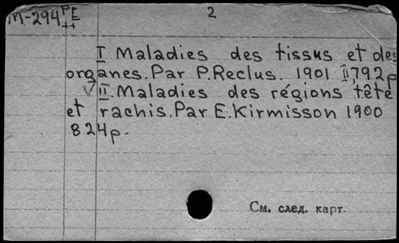 M-294 PE
++
2
I Maladies des tissus et des
organes. Par P. Reclus. 1901 II, 792p
√ II. Maladies des régions tête
et rachis. Par E. Kirmisson 1900
824p.
См. след. карт.